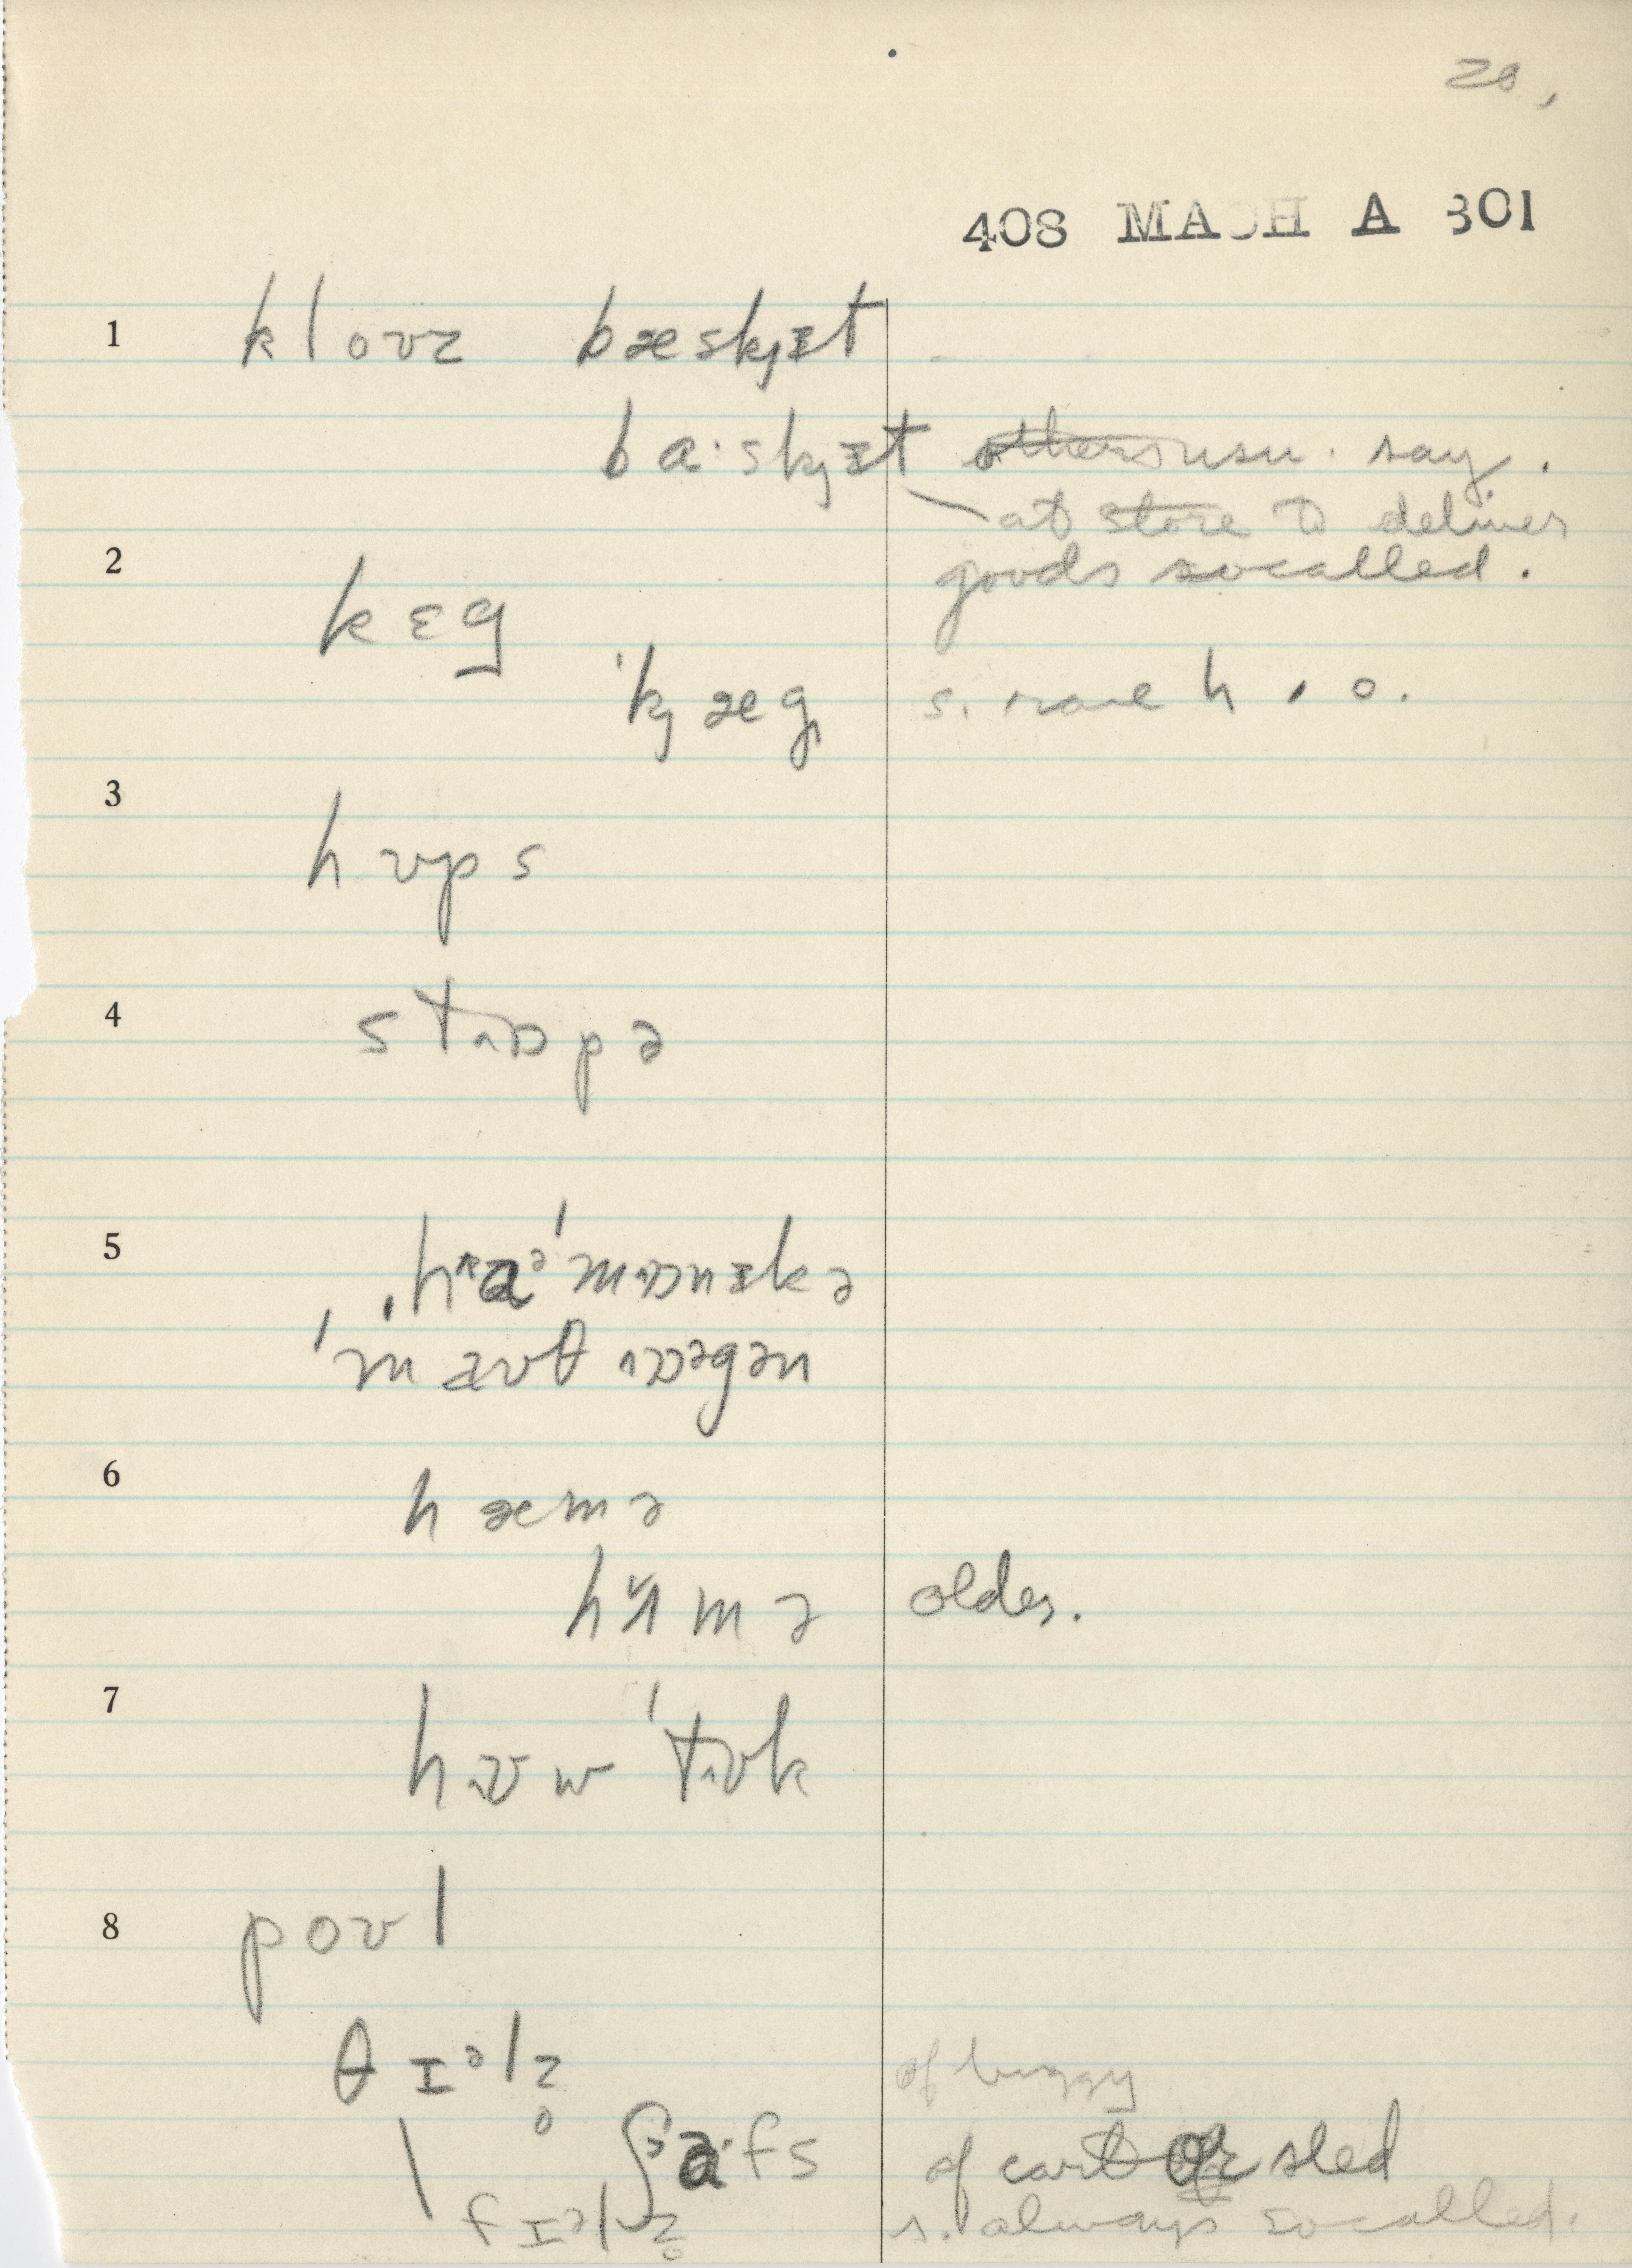 20,
408 MACH A 301
1 kloʊz bæskɟɪt
ba·skɟɪt others usu. say.
at store to deliver
2 goods socalled.
kɛg
'kɟæg s. rare h. o.
3
hʊps
4 stɒpə
5
mɒnɪkə
'mæʊθ ɒəgən
6
hæmə
mə older.
7
tʊk
8 poʊl
θɪəlz̥ of buggy
ʃa·fs of cart or sled
fɪəlz̥ s. always socalled.